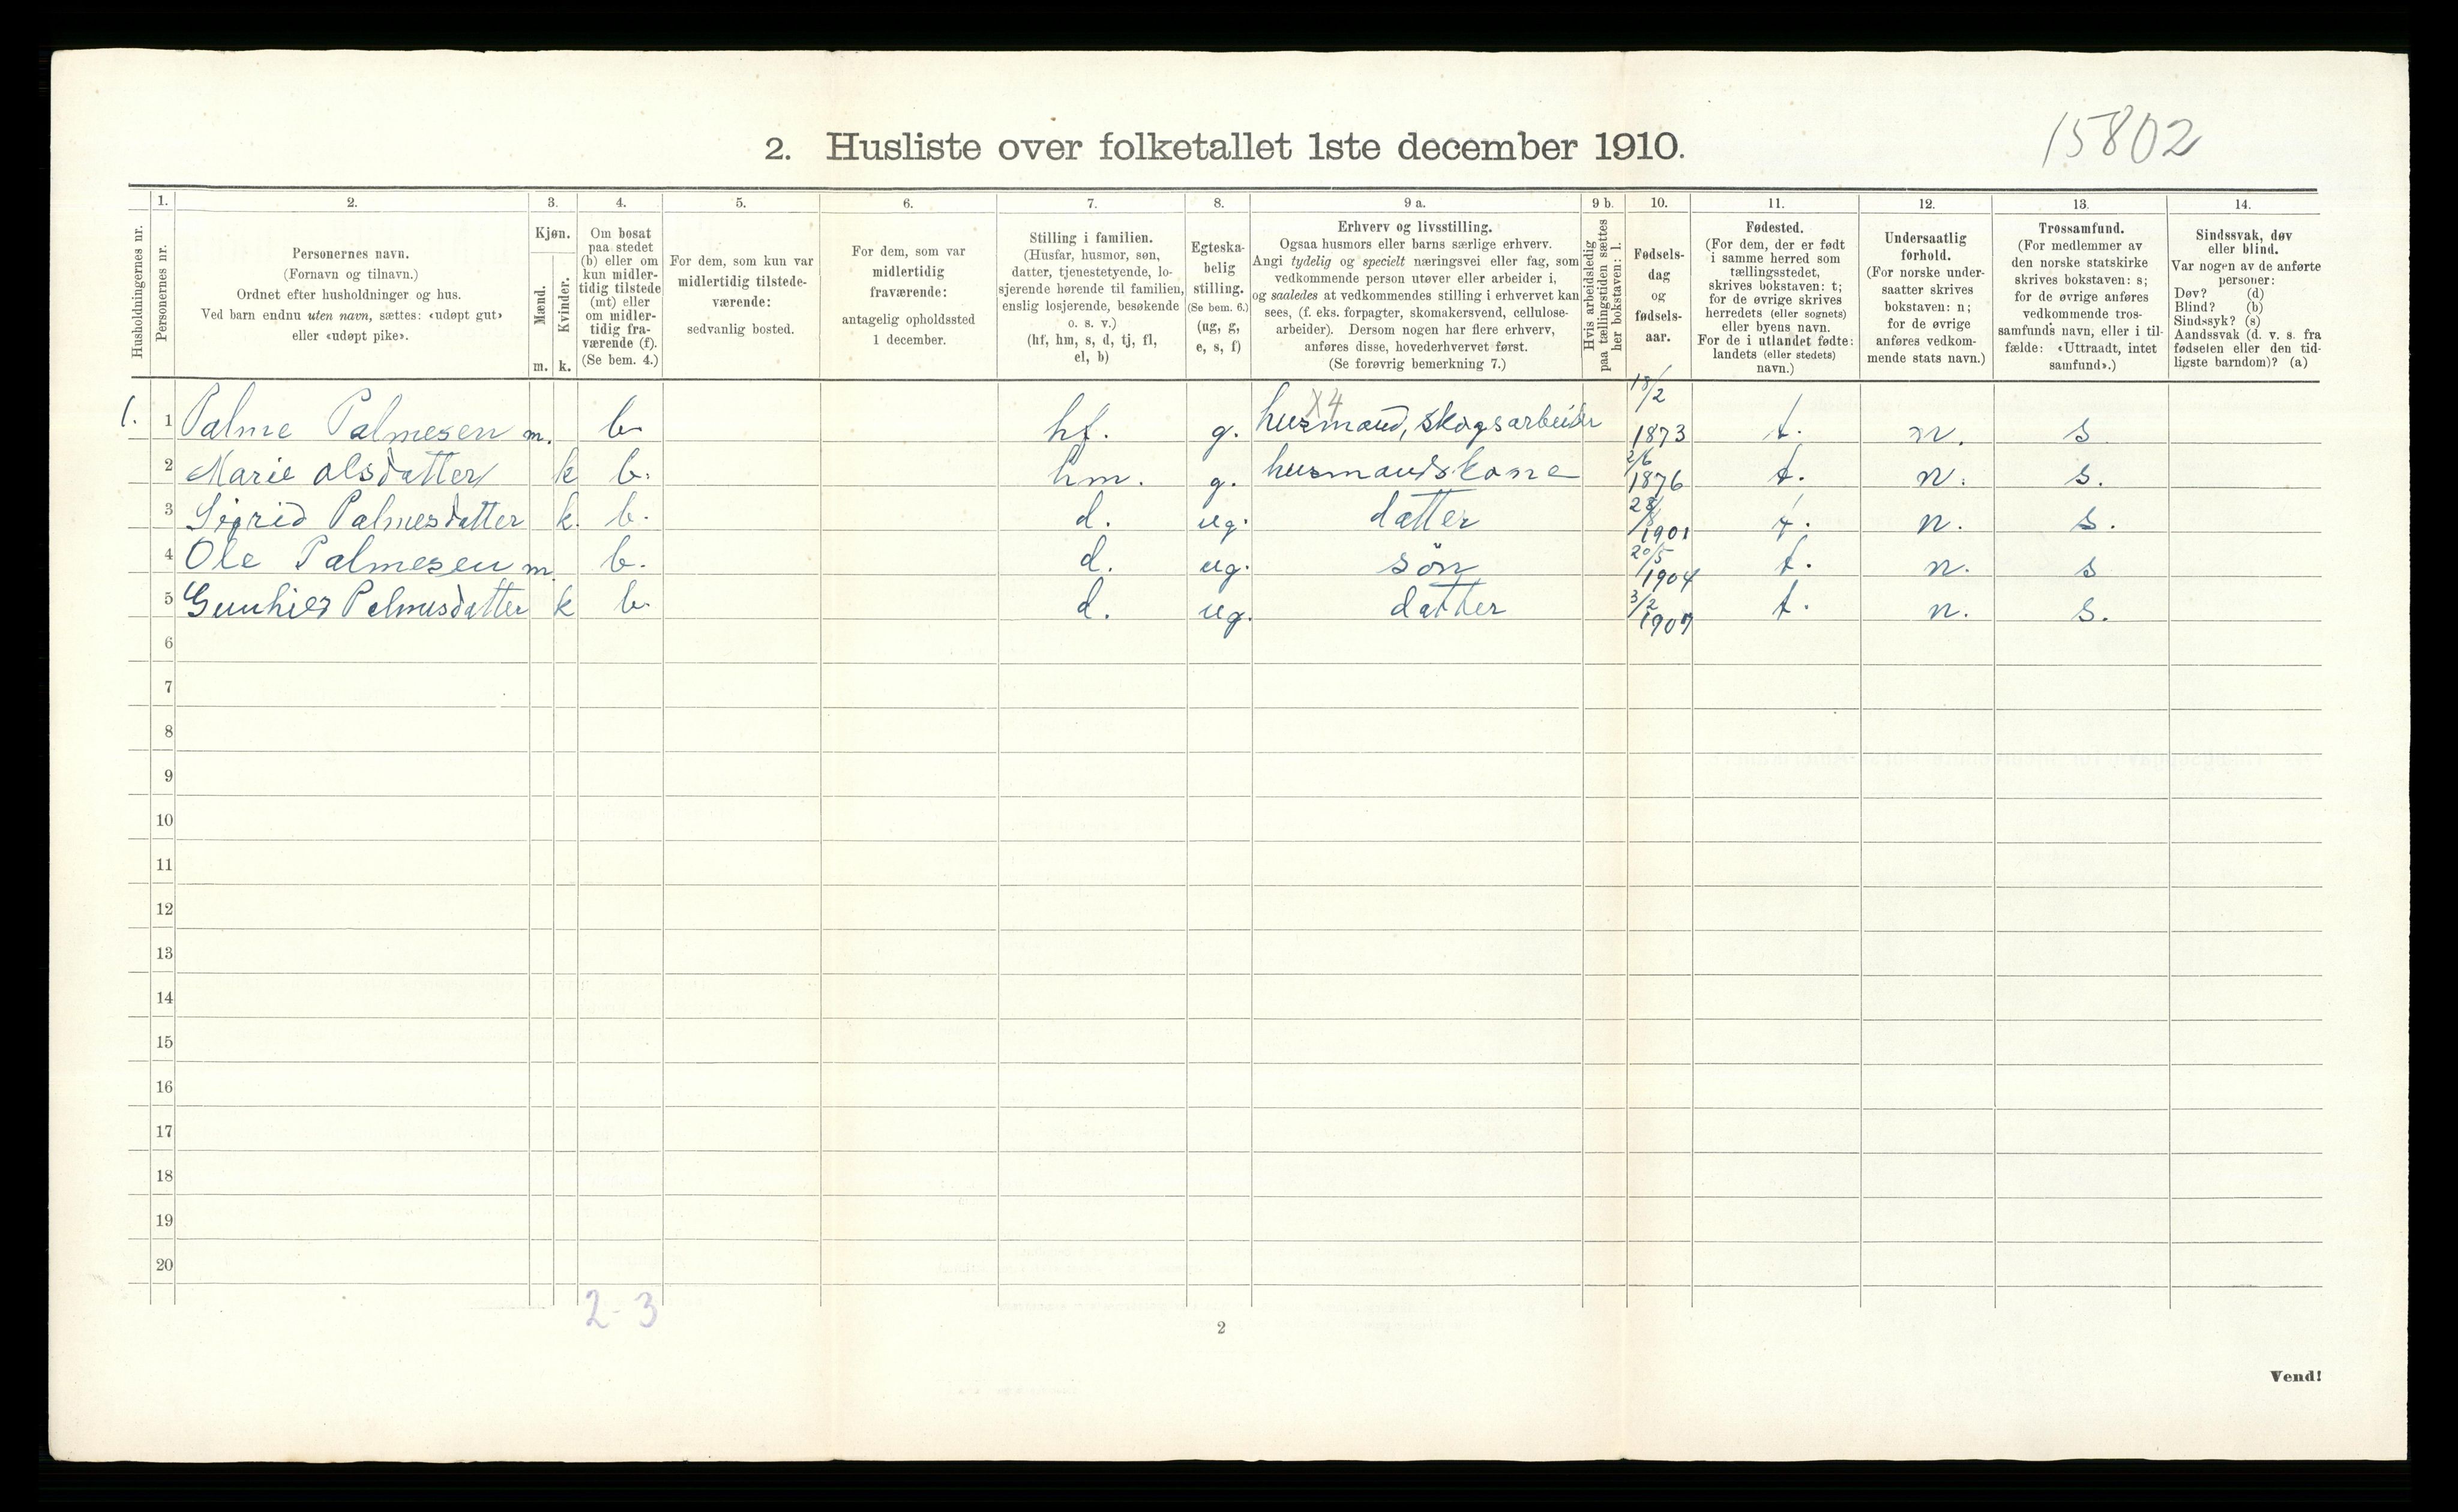 15802
2. Husliste over folketallet 1ste december 1910.
1. 2. 3. 4. 5. 6. 7. 8. 9 a. 9 b. 10. 11. 12. 13. 14.
Husholdningernes nr.
Personernes nr.
Personernes navn.
(Fornavn og tilnavn.)
Ordnet efter husholdninger og hus.
Ved barn endnu uten navn, sættes: «udøpt gut»
eller «udøpt pike».
Kjøn.
Mænd.
Kvinder.
m. k.
Om bosat
paa stedet
(b) eller om
kun midler-
tidig tilstede
(mt) eller
om midler-
tidig fra-
værende (f).
(Se bem. 4.)
For dem, som kun var
midlertidig tilstede-
værende:
sedvanlig bosted.
For dem, som var
midlertidig
fraværende:
antagelig opholdssted
1 december.
Stilling i familien.
(Husfar, husmor, søn,
datter, tjenestetyende, lo-
sjerende hørende til familien,
enslig losjerende, besøkende
o. s. v.)
(hf, hm, s, d, tj, fl,
el, b)
Egteska-
belig
stilling.
(Se bem. 6.)
(ug, g,
e, s, f)
Erhverv og livsstilling.
Ogsaa husmors eller barns særlige erhverv.
Angi tydelig og specielt næringsvei eller fag, som
vedkommende person utøver eller arbeider i,
og saaledes at vedkommendes stilling i erhvervet kan
sees, (f. eks. forpagter, skomakersvend, cellulose-
arbeider). Dersom nogen har flere erhverv,
anføres disse, hovederhvervet først.
(Se forøvrig bemerkning 7.)
Hvis arbeidsledig
paa tællingstiden sættes
her bokstaven: l.
Fødsels-
dag
og
fødsels-
aar.
Fødested.
(For dem, der er født
i samme herred som
tællingsstedet,
skrives bokstaven: t;
for de øvrige skrives
herredets (eller sognets)
eller byens navn.
For de i utlandet fødte:
landets (eller stedets)
navn.)
Undersaatlig
forhold.
(For norske under-
saatter skrives
bokstaven: n;
for de øvrige
anføres vedkom-
mende stats navn.)
Trossamfund.
(For medlemmer av
den norske statskirke
skrives bokstaven: s;
for de øvrige anføres
vedkommende tros-
samfunds navn, eller i til-
fælde: «Uttraadt, intet
samfund».)
Sindssvak, døv
eller blind.
Var nogen av de anførte
personer:
Døv? (d)
Blind? (b)
Sindssyk? (s)
Aandssvak (d. v. s. fra
fødselen eller den tid-
ligste barndom)? (a)
X4
1. 1 Palme Palmesen m. b. hf. g. husmand, skogsarbeider 18/2 1873 t. n. s
2 Marie Olsdatter k b. hm. g. husmandskone 2/6 1876 t. n. s.
3 Sigrid Palmesdatter k. b. d. ug. datter 1901 t. n. s.
4 Ole Palmesen m. b. d. ug. søn 20/5 1904 t. n. s
5 Gunhild Palmesdatter k b. d. ug. datter 3/2 1907 t. n. s.
6
7
8
9
10
11
12
13
14
15
16
17
18
19
20
2-3
2
Vend!